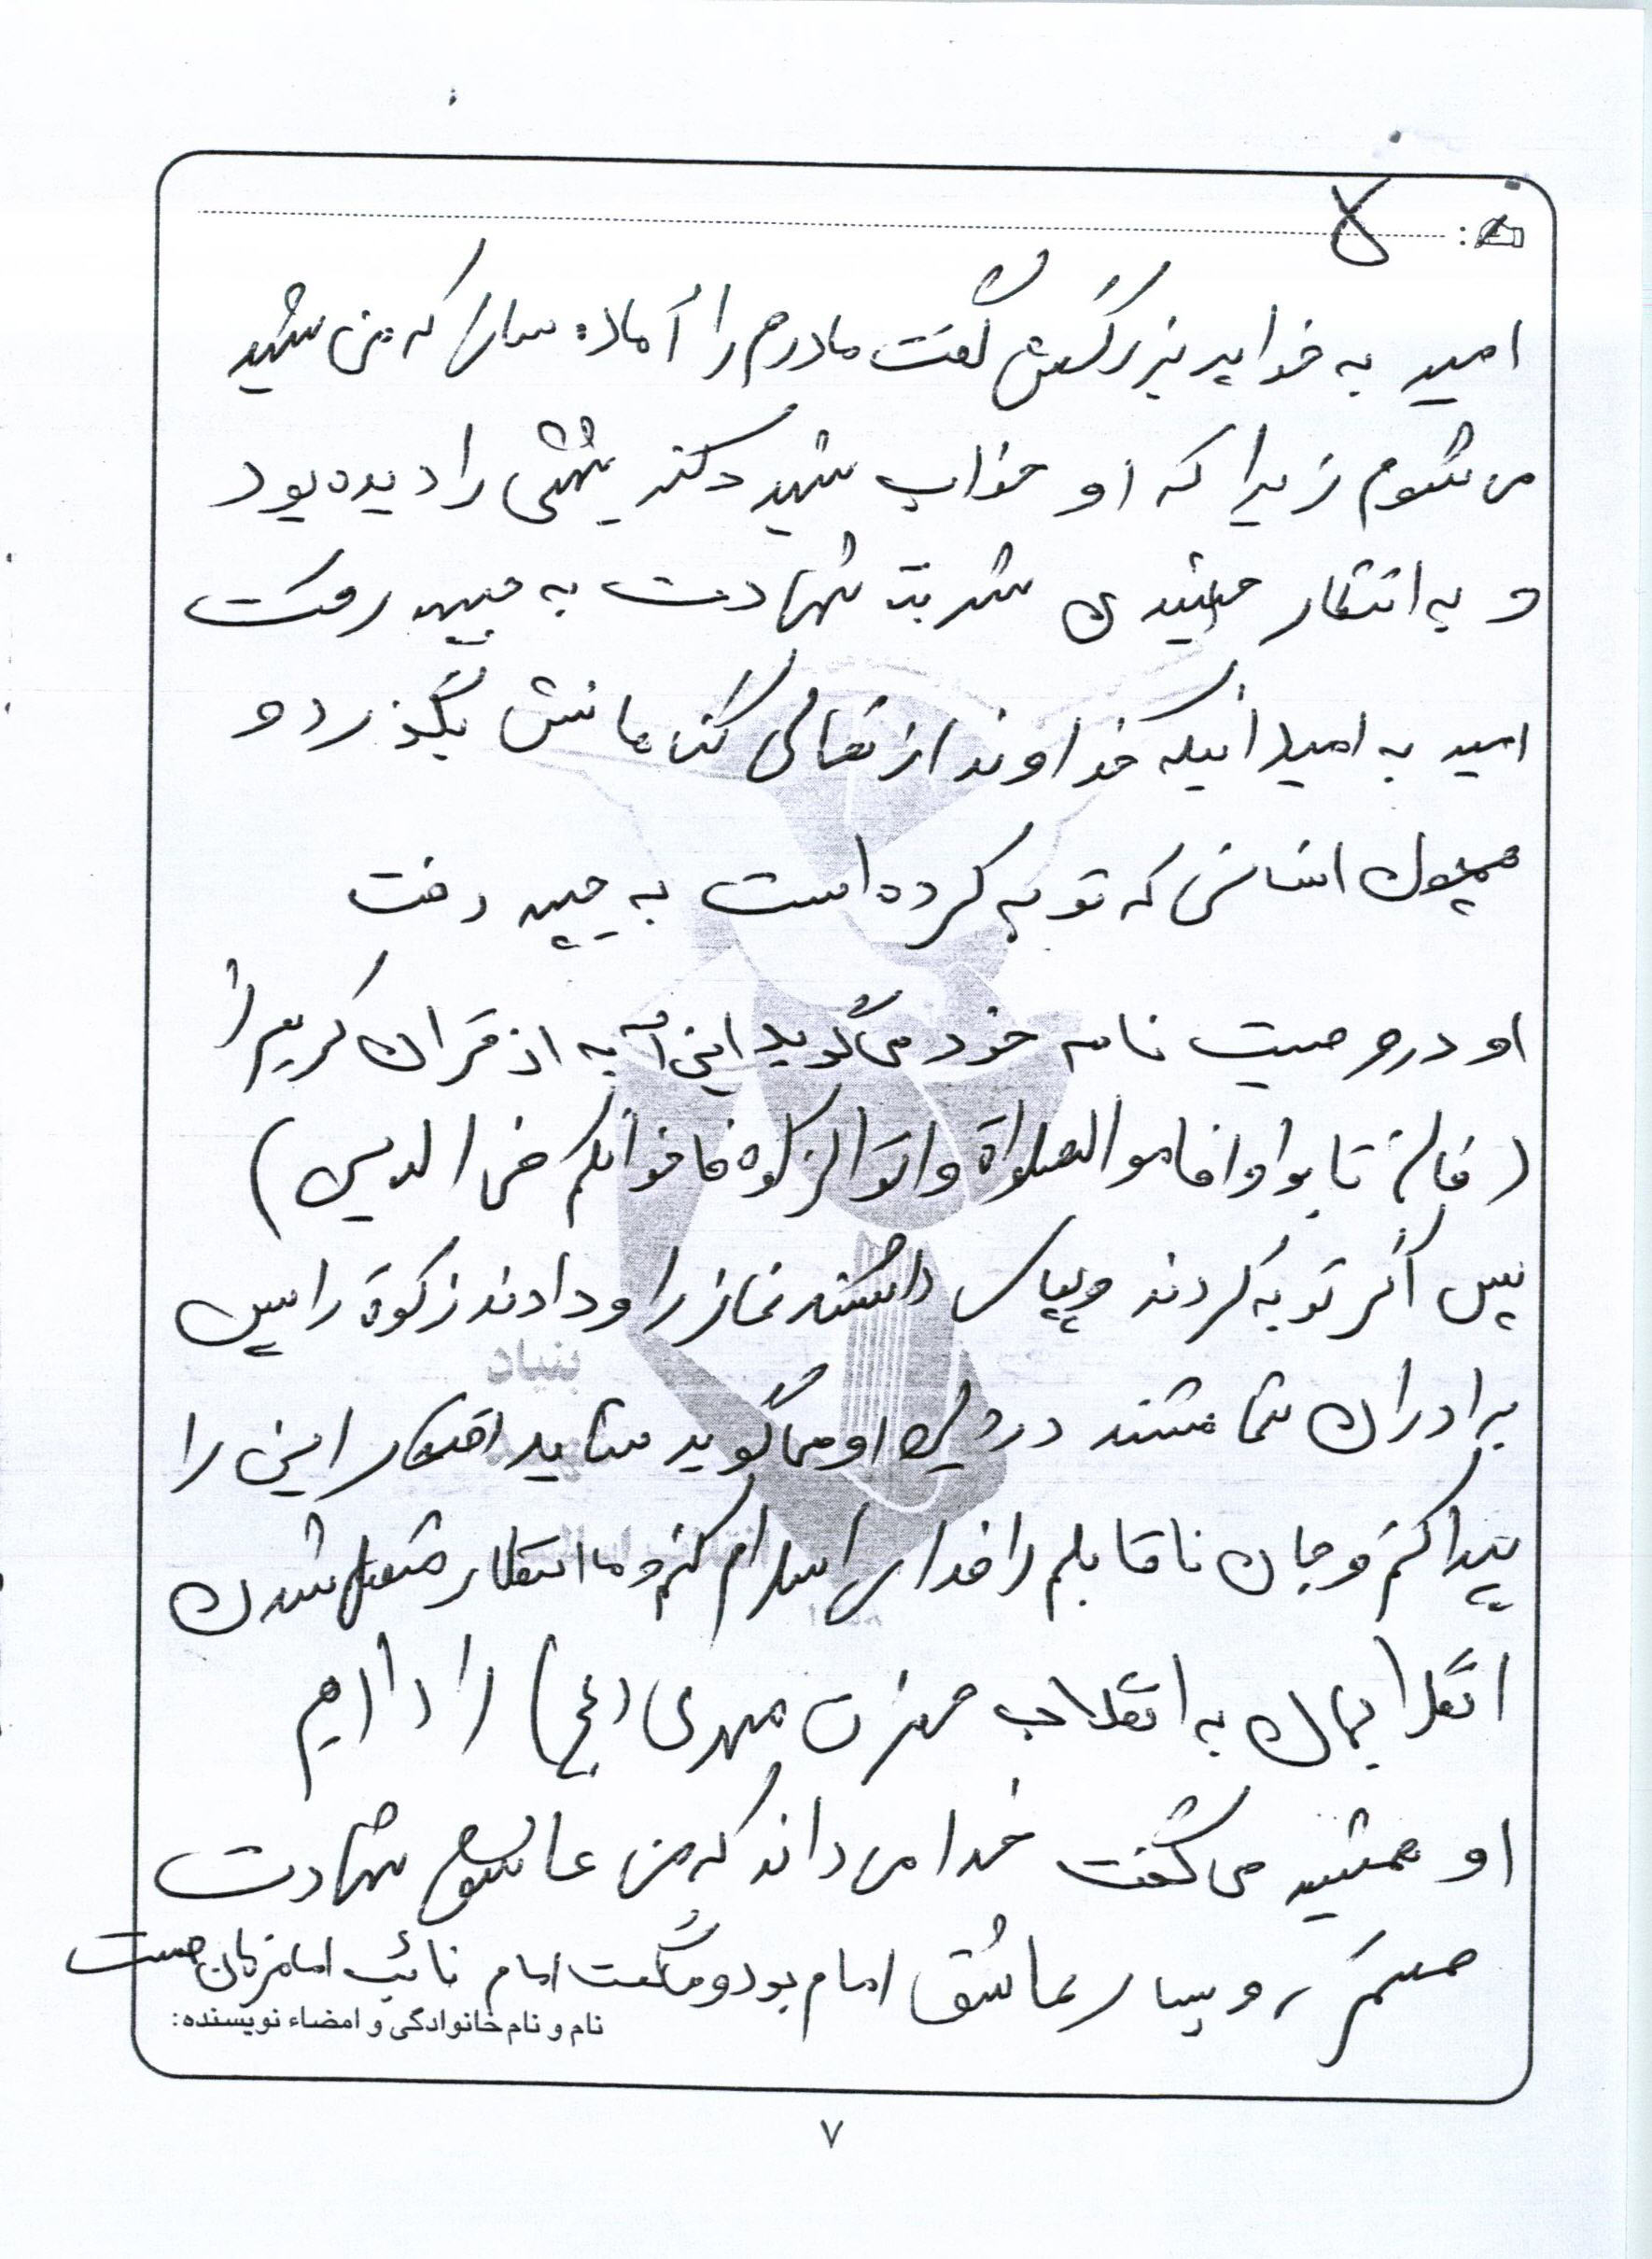 امید به خواهر بزرگش گفت مادرم را آماده ساز که من شهید
می شوم زیرا که او خواب شهید دکتر بهشتی را دیده بود
و به انتظار چشیدی شربت شهادت به جبهه رفت
امید به امید اینکه خداوند از تعالی گناهانش بگذرد و
همچون انسانی که توبه کرده است به جبهه رفت
او در وصیت نامه خود می گوید این آیه از قران کریم را
(فان تابوا و اقامو الصلواة و اتوا الزکوة فاخوانکم فی الدین)
پس اگر توبه کردند و بپاس داشتند نماز را و دادند زکوة را پس
برادران شما هستند او میگوید شاید افتخار این را
پیدا کنم و جان ناقابلم را فدای اسلام کنم و ما انتظار متصل شدن
انقلابمان به انقلاب حضرت مهدی (عج) را داریم
او همیشه می گفت خدا می داند که من عاشق شهادت
هستم و بسیار عاشق امام بود و میگفت امام نائب امام زمان هست
نام و نام خانوادگی و امضاء نویسنده:
۷